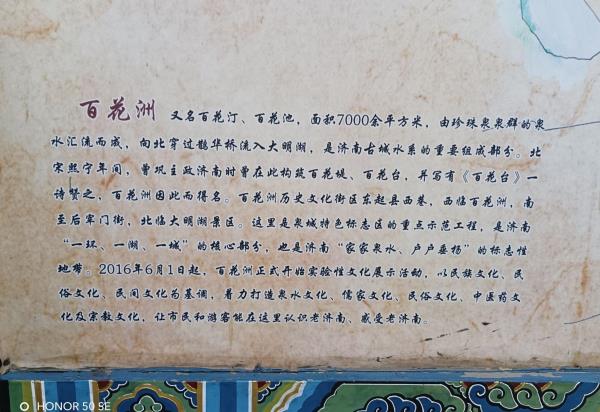 百花洲 又名百花汀、百花池，面积7000余平方米，由珍珠泉泉群的泉
水汇流而成，向北穿过鹊华桥流入大明湖，是济南古城水系的重要组成部分。北
宋熙宁年间，曾巩主政济南时曾在此构筑百花堤、百花台，并写有《百花台》一
诗赞之，百花洲因此而得名。百花洲历史文化街区东起县西巷，西临百花洲，南
至后宰门街，北临大明湖景区。这里是泉城特色标志区的重点示范工程，是济南
“一环、一湖、一城”的核心部分，也是济南“家家泉水、户户垂杨”的标志性
地带。2016年6月1日起，百花洲正式开始实验性文化展示活动，以民族文化、民
俗文化、民间文化为基调，着力打造泉水文化、儒家文化、民俗文化、中医药文
化及宗教文化，让市民和游客能在这里认识老济南、感受老济南。
HONOR 50 SE